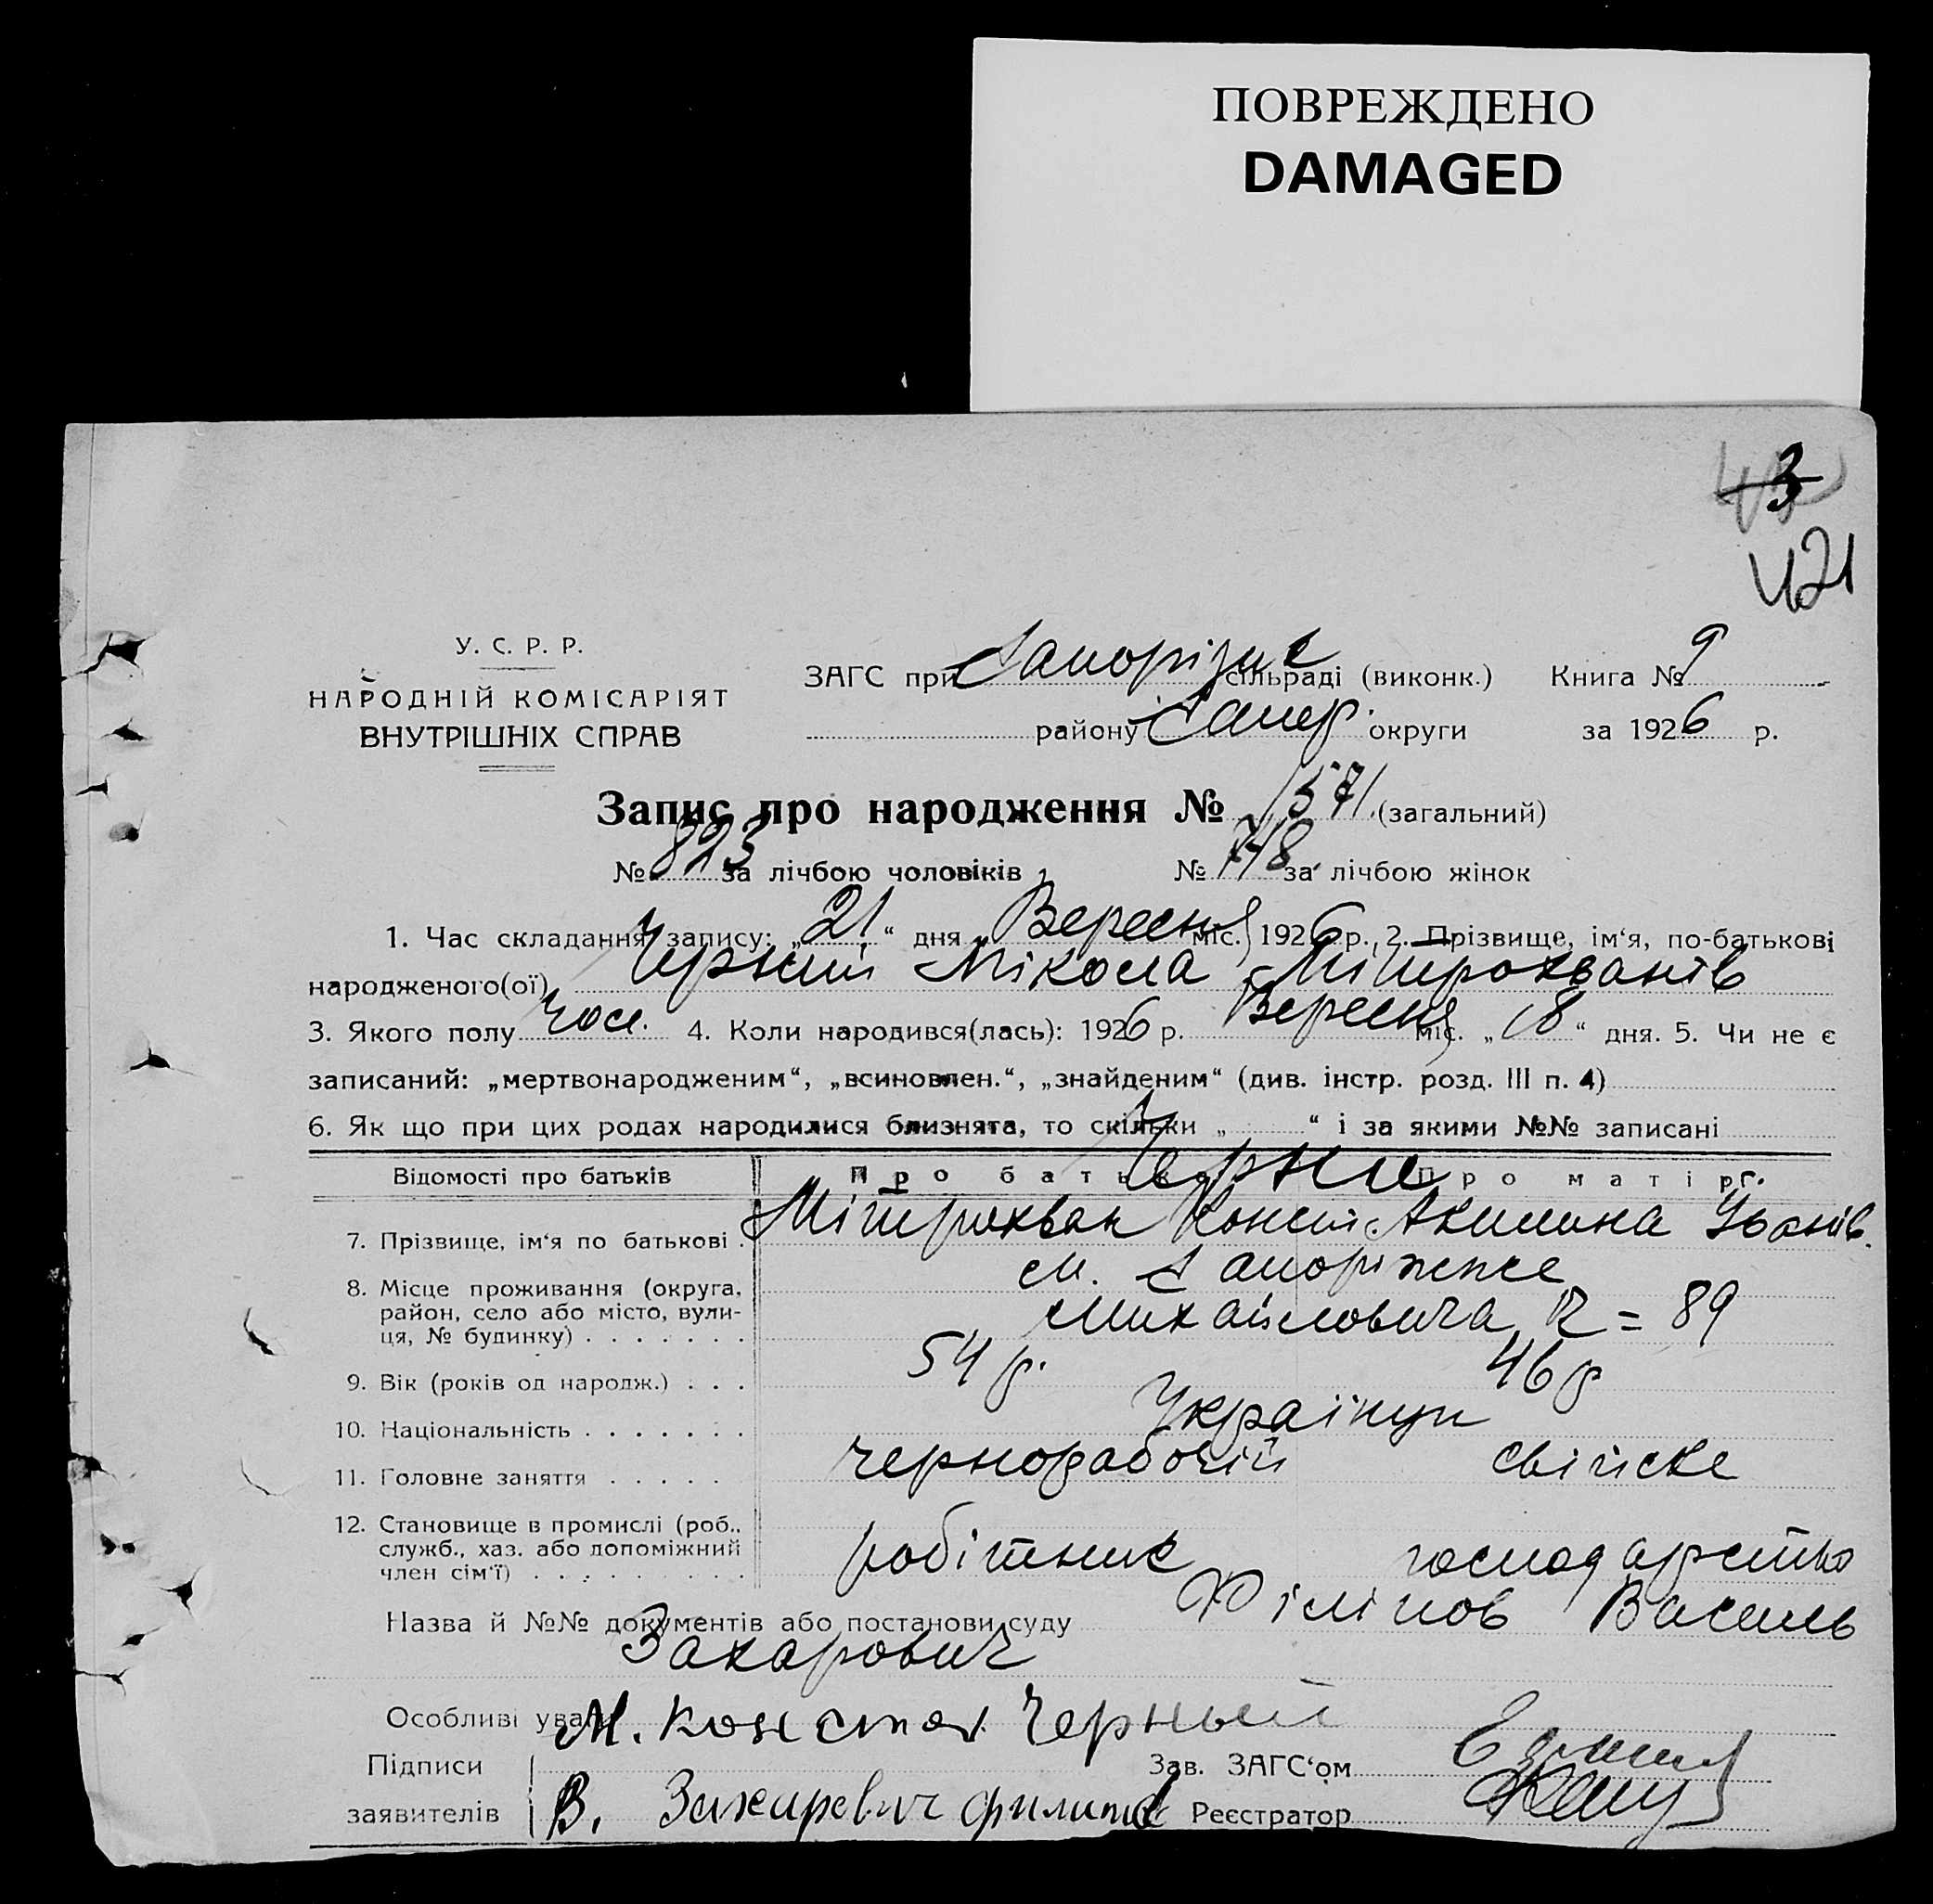 ПОВРЕЖДЕНО
DAMAGED
43
421
У. С. Р. Р.
НАРОДНІЙ КОМІСАРІЯТ
ВНУТРІШНІХ СПРАВ
ЗАГС при Запоріжс сільраді (виконк.) Книга № 9
району Запор. округи за 1926 р.
Запис про народження № 1571 (загальний)
№ 823 за лічбою чоловіків № 748 за лічбою жінок
1. Час складання запису: „21“ дня Вересня міс. 1926 р. 2. Прізвище, ім‘я, по-батькові
народженого(ої) Черний Мікола Мітрохванів
3. Якого полу Чол. 4. Коли народився(лась): 1926 р. Вересня міс. „18“ дня. 5. Чи не є
записаний: „мертвонародженим“, „всиновлен.“, „знайденим“ (див. інстр. розд. III п. 4)
6. Як що при цих родах народилися близнята, то скільки „ “ і за якими №№ записані
Відомості про батьків Про батька Черни Про матір
7. Прізвище, ім‘я по батькові . Мітрохван Конст. Акилина Іванів.
8. Місце проживання (округа, м. Запоріжже
район, село або місто, вули-
ця, № будинку) . . . . . . . Михайловича = 89
9. Вік (років од народж.) . . . 54 р. 46 р
10. Національність . . . . . . . Українци
11. Головне заняття . . . . . чернорабочій свійске
12. Становище в промислі (роб.,
служб., хаз. або допоміжний
член сім‘ї) . . . . . . . . . робітник господарство
Назва й №№ документів або постанови суду Філіпов Василь
Захарович
Особливі уваги М. Констан Черный
Підписи Зав. ЗАГС‘ом
заявителів В. Захаревич филипов Реєстратор